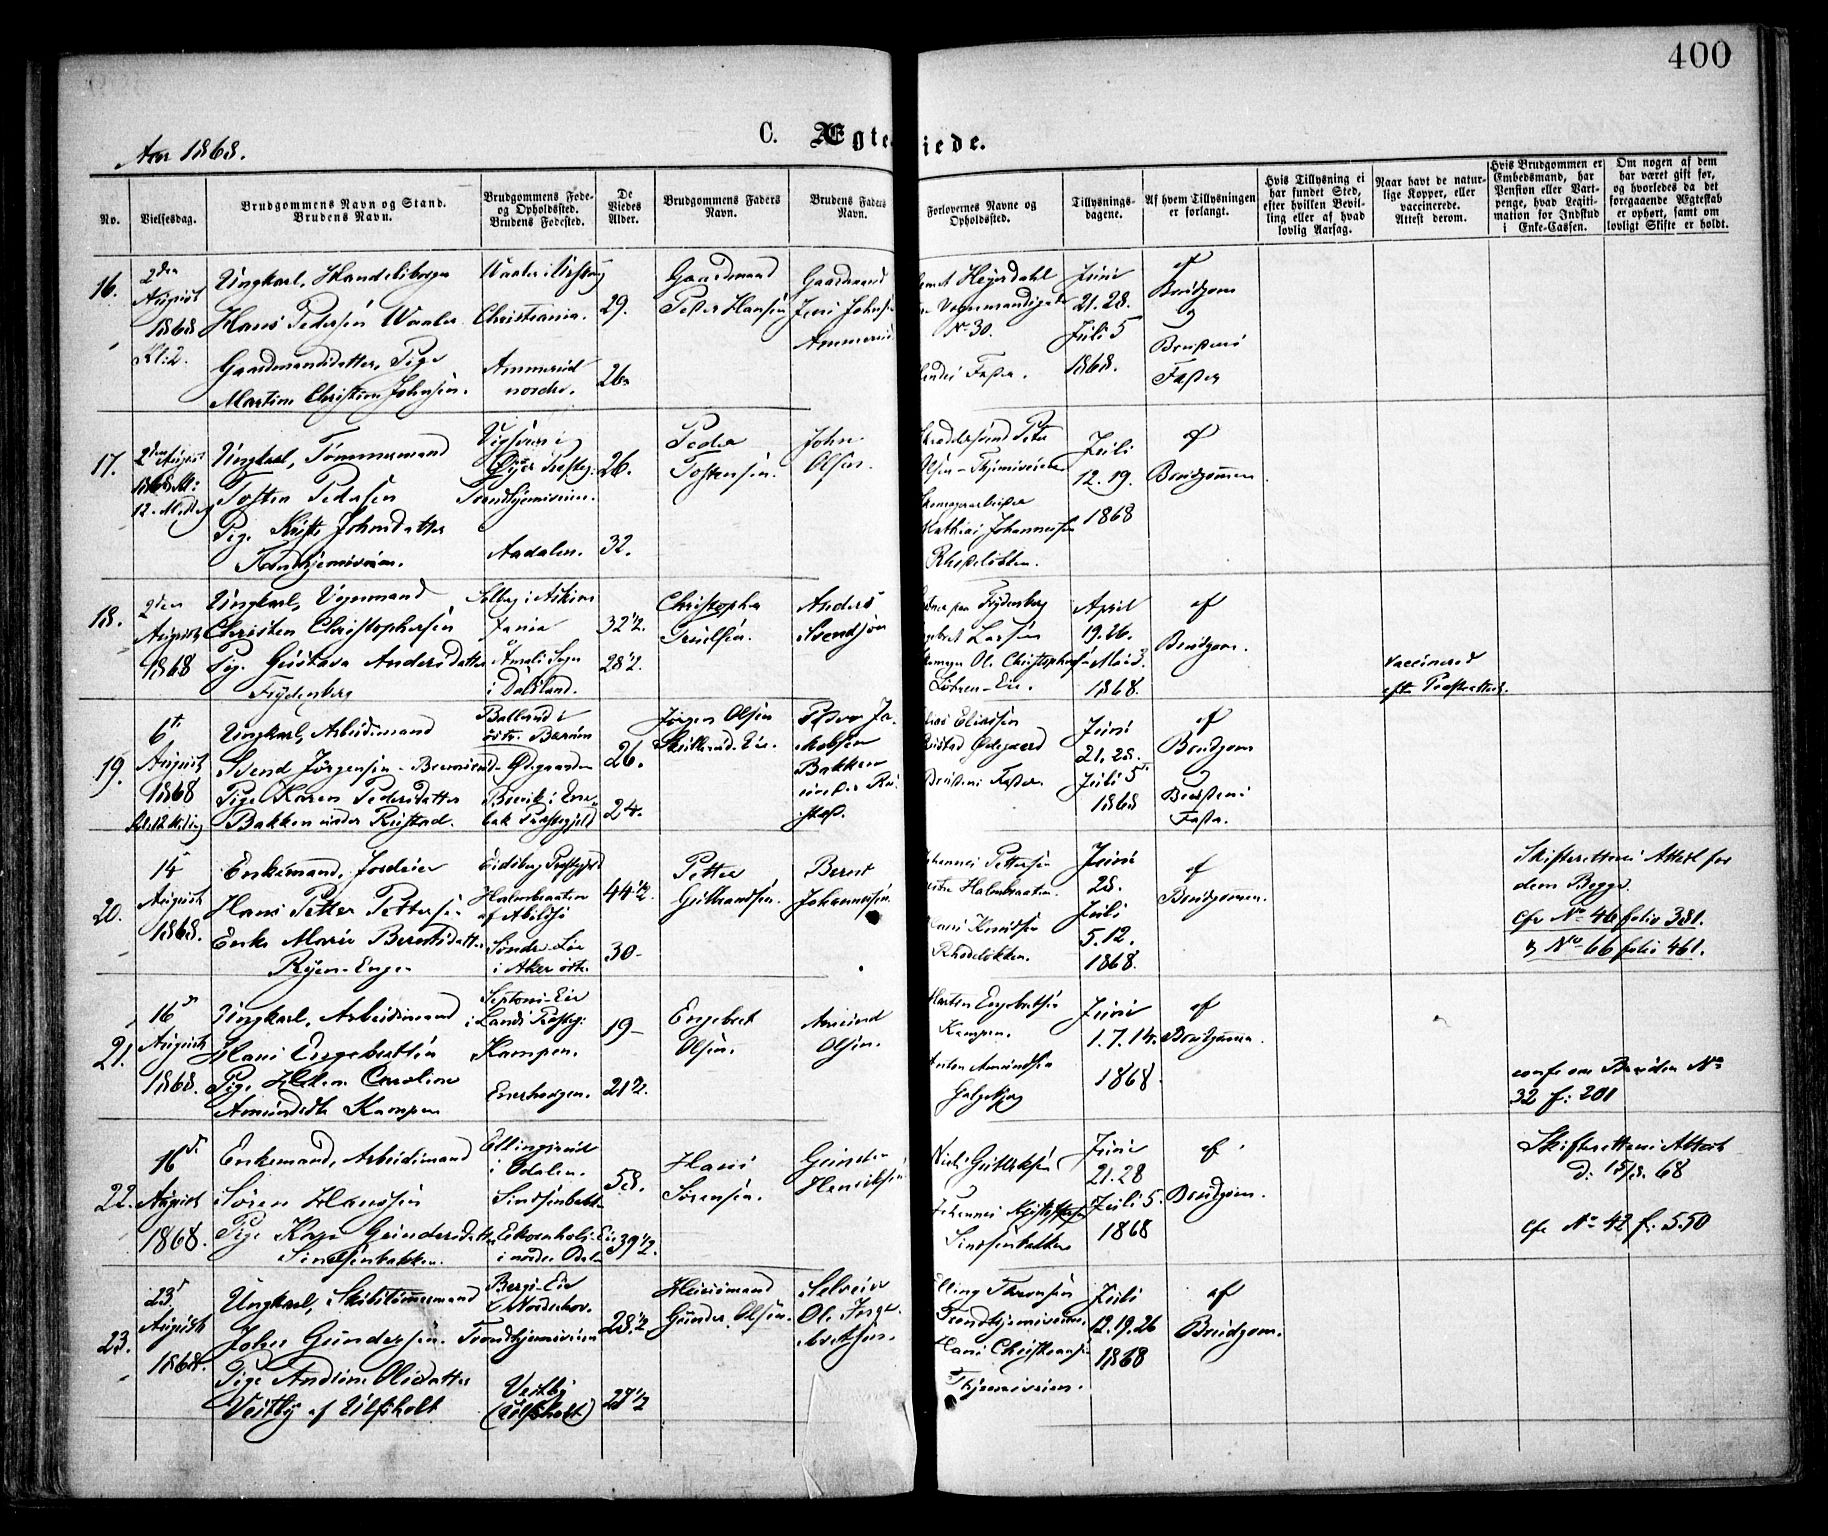 400
C. Ægteviede.
Aar 1868.
No.
Vielsesdag.
Brudgommens Navn og Stand.
Brudens Navn.
Brudgommens Føde-
og Opholdssted.
Brudens Fødested.
De
Viedes
Alder.
Brudgommens Faders
Navn.
Brudens Faders
Navn.
Forlovernes Navne og
Opholdssted.
Tillysnings-
dagene.
Af hvem Tillysningen
er forlangt.
Hvis Tillysning ei
har fundet Sted,
efter hvilken Bevil-
ling eller af hvad
lovlig Aarsag.
Naar havt de natur-
lige Kopper, eller
vaccinerede.
Attest derom.
Hvis Brudgommen er
Embedsmand, har
Pension eller Vart-
penge, hvad Legiti-
mation for Indskud
i Enke-Cassen.
Om nogen af dem
har været gift før,
og hvorledes da det
foregaaende Ægteskab
er ophørt, samt om
lovligt Skifte er holdt.
16.
2den
August
1868
Kl: 2.
Ungkarl, Handelsborger
Hans Pedersen Waaler
Gaardmandsdatter, Pige
Martine Christine Johnsen.
Christiania.
Ammerud
nordre.
29.
26
Gaardmand
Peter Hansen
Gaardmand
Jens Johns
Ammerud
Heyerdahl
No 30.
Juni
21. 28.
Juli 5
1868.
af
Brudgom
og
Brudens
Fader
17.
2den August
1868 Kl:
12. Middag
Ungkarl, Tømmermand
Tosten Pedersen
Pige Johnsdatter
Trondhjemsveien.
Øyer Præsteg:
Trondhjemsveien.
Aadalen.
26.
32.
Peder
Tostensen.
John
Olsen.
Peter
Olsen - Thjemsveien
Mathias Johannessen
Rhodeløkken.
Juli
12. 19.
1868
af
Brudgommen.
18.
2den
August
1868
Ungkarl, Vognmand
Christen Christophersen
Pig. Gustava Andersdatter
Frydenberg
Åmåls Sogn
i Dalsland.
32 1/2.
28 1/2.
Christopher
Truelsen.
Anders
Svendsen
Frydenberg
Larsen
Ole Christophersen
Løkken - Eie
April
19. 26.
Mai 3.
1868.
af
Brudgom.
vaccinered
eft. Præsteattest.
19.
6te
August
1868
Kl. 12 Middag
Ungkarl, Arbeidsmand
Svend Jørgensen
Pige Karen Pedersdatter
Bakken under Rustad.
Ballerud i
østr. Bærum
Ødegaarden
Brevik i Ene-
bak Præstegjeld
26.
24.
Jørgen Olsen
Peder Ja-
kobsen
Bakken
under Ru-
stad.
Eliassen
Rustad Ødegaard
Brudens Fader
Juni
21. 28.
Juli 5.
1868
af
Brudgom
Brudens
Fader.
20.
14
August
1868.
Enkemand, Jordeier
Hans Petter Pettersen
Enke Marie Berntsdatter
Ryen-Enge
Eidsberg Præstegjeld
Halmbraaten
af Abildsø
Søndre Lie
i Aker østr.
44 1/2.
30
Petter
Gulbrandsen.
Bernt
Johannesen.
Johannes Pettersen
Halmbraaten.
Hans Knudsen
Rhodeløkken.
Juni
28.
Juli
5. 12.
1868.
af
Brudgommen.
Skifterettens Attest for
dem Begge.
cfr No 46 folio 381.
& No 66 folio 461.
21.
16de
August
1868.
Ungkarl, Arbeidsmand
Hans Engebretsen
Pige Helene Caroline
Amundsdtr Kampen
Lands Præsteg:
Kampen.
Enerhaugen.
19
21 1/2.
Engebret
Olsen.
Amund
Olsen.
Morten Engebretsen
Kampen.
Anton Amundsen
Galgebjerg
Juni
1. 7. 14.
1868
af
Brudgommen.
conf. om Bruden No
32 f: 201
22.
16de
August
1868.
Enkemand, Arbeidsmand
Søren Hanssen
Pige Gundersdatter
Sinsenbakken.
i Odalen.
Sinsenbakken
i nordre Odal
58.
39 1/2.
Hans
Sørensen.
Gunder
Henriksen
Niels Gulliksen
Johannes
Sinsenbakken
Juni
21. 28
Juli 5.
1868
af
Brudgom.
Skifterettens Attest
d: 15/8. 68
cfr No 42 f. 550
23.
23de
August
1868.
Ungkarl, Skibstømmermand
Johs Gundersen.
Pige Andrine Olsdatter
Vestby af Ulfsholt
Bergs-Eie
Norderhov.
Trondhjemsveien
Vestby
(Ulfsholt)
28 1/2
27 1/2
Huusmand
Gunder Olsen.
Selveier
Ole Inge-
bretsen.
Elling Thronsen
Trondhjemsveien.
Hans Christiansen
Thjemsveien.
Juli
12. 19. 26
1868
af
Brudgom.